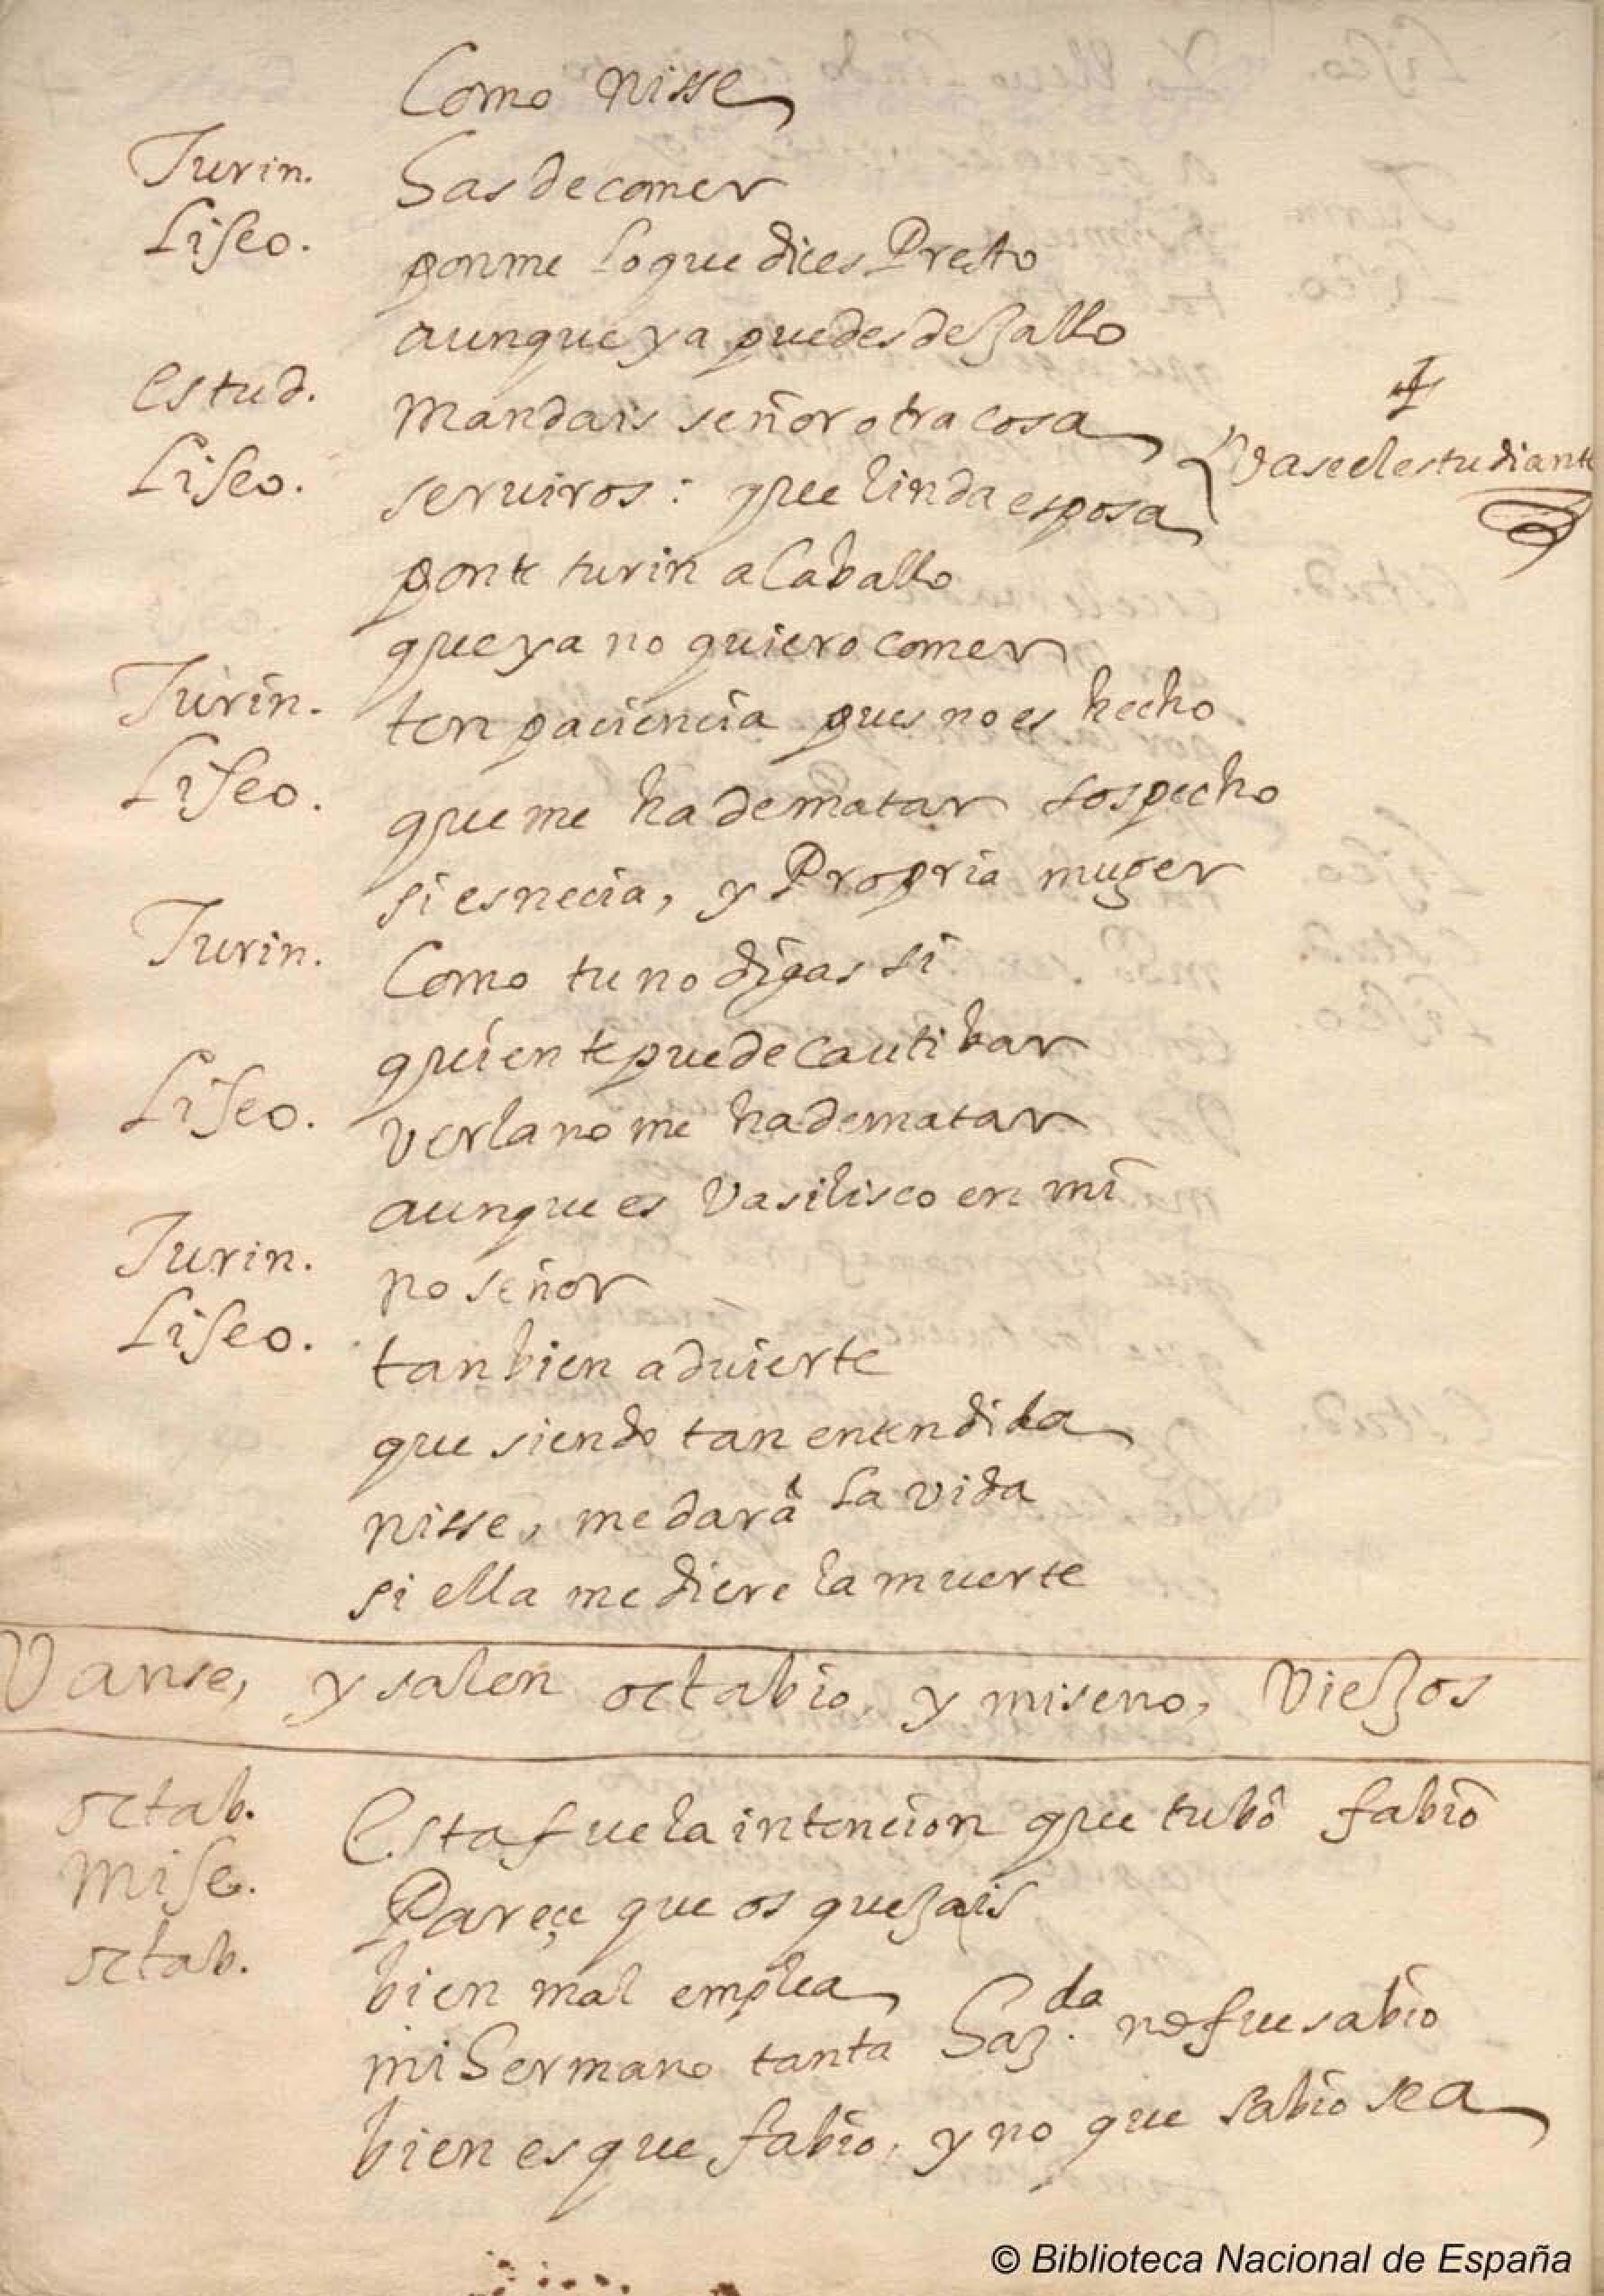 Como nisse
Turin. has de comer
Liseo. ponme lo que dices Presto
aunque ya puedes dejallo
estud. Mandais señor otra cosa
Vase el estudiante
Liseo. seruiros: que linda esposa
ponte turin a Caballo
que ya no quiero comer
Turin. ten paciencia pues no es hecho
Liseo. que me ha de matar sospecho
si es necia, y Propria muger
Turin. Como tu no digas si
quien te puede cautibar
Liseo. verla no me ha de matar
aunque es Vasilisco en mi
Turin. no señor
Liseo. tanbien aduierte
que siendo tan entendida
nisse, me dará la vida
si ella me diere la muerte
Vanse, y salen octabio, y miseno, Viejos
octab. Esta fue la intencion que tubo fabio
Mise. Pareçe que os quejais
octab. bien mal emplea
mi hermano tanta haz.da no fue sabio
bien es que fabio, y no que sabio sea
© Biblioteca Nacional de España